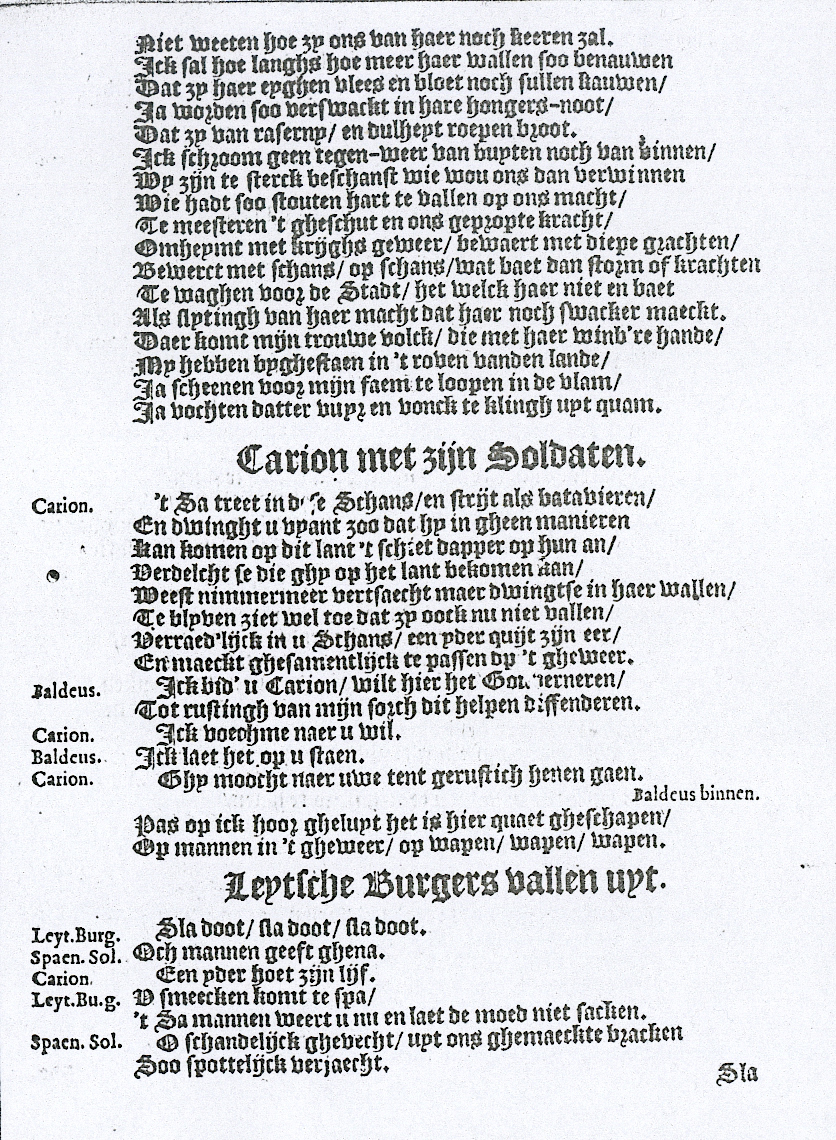 Niet weeten hoe zy ons van haer noch keeren zal.
Ick sal hoe langhs hoe meer haer wallen soo benauwen
Dat zy haer eyghen vlees en bloet noch sullen kauwen/
Ja worden soo verswackt in hare hongers-noot/
Dat zy van raserny/ en dulheyt roepen broot.
Ick schroom geen tegen-weer van buyten noch van binnen/
Wy zijn te sterck beschanst wie wou ons dan verwinnen
Wie hadt soo stouten hart te vallen op ons macht/
Te meesteren 't gheschut en ons gepropte kracht/
Omheymt met krijghs geweer/ bewaert met diepe grachten/
Bewerct met schans/ op schans/ wat baet dan storm of krachten
Te waghen voor de Stadt/ het welck haer niet en baet
Als slytingh van haer macht dat haer noch swacker maeckt.
Daer komt mijn trouwe volck/ die met haer winb're hande/
My hebben byghestaen in 't roven vanden lande/
Ja scheenen voor mijn faem te loopen in de vlam/
Ja vochten datter vuyr en vonck te klingh uyt quam.
Carion met zijn Soldaten.
Carion. 't Sa treet in Schans/ en strijt als batavieren/
En dwinght u vyant zoo dat hy in gheen manieren
Kan komen op dit lant 't schiet dapper op hun an/
Verdelcht se die ghy op het lant bekomen kan/
Weest nimmermeer vertsaecht maer dwingtse in haer wallen/
Te blyven ziet wel toe dat zy oock nu niet vallen/
Verraed'lijck in u Schans/ een yder quijt zijn eer/
En maeckt ghesamentlijck te passen op 't gheweer.
Baldeus. Ick bid' u Carion/ wilt hier het Gouverneren/
Tot rustingh van mijn sorch dit helpen diffenderen.
Carion. Ick voechme naer u wil.
Baldeus. Ick laet het op u staen.
Carion. Ghy moocht naer uwe tent gerustich henen gaen.
Baldeus binnen.
Pas op ick hoor gheluyt het is hier quaet gheschapen/
Op mannen in 't gheweer/ op wapen/ wapen/ wapen.
Leytsche Burgers vallen uyt.
Leyt.Burg. Sla doot/ sla doot/ sla doot.
Spaen. Sol. Och mannen geeft ghena.
Carion. Een yder hoet zijn lijf.
Leyt.Bu.g. V smeecken komt te spa/
't Sa mannen weert u nu en laet de moed niet sacken.
Spaen. Sol. O schandelijck ghevecht/ uyt ons ghemaeckte bracken
Soo spottelijck verjaecht.
Sla